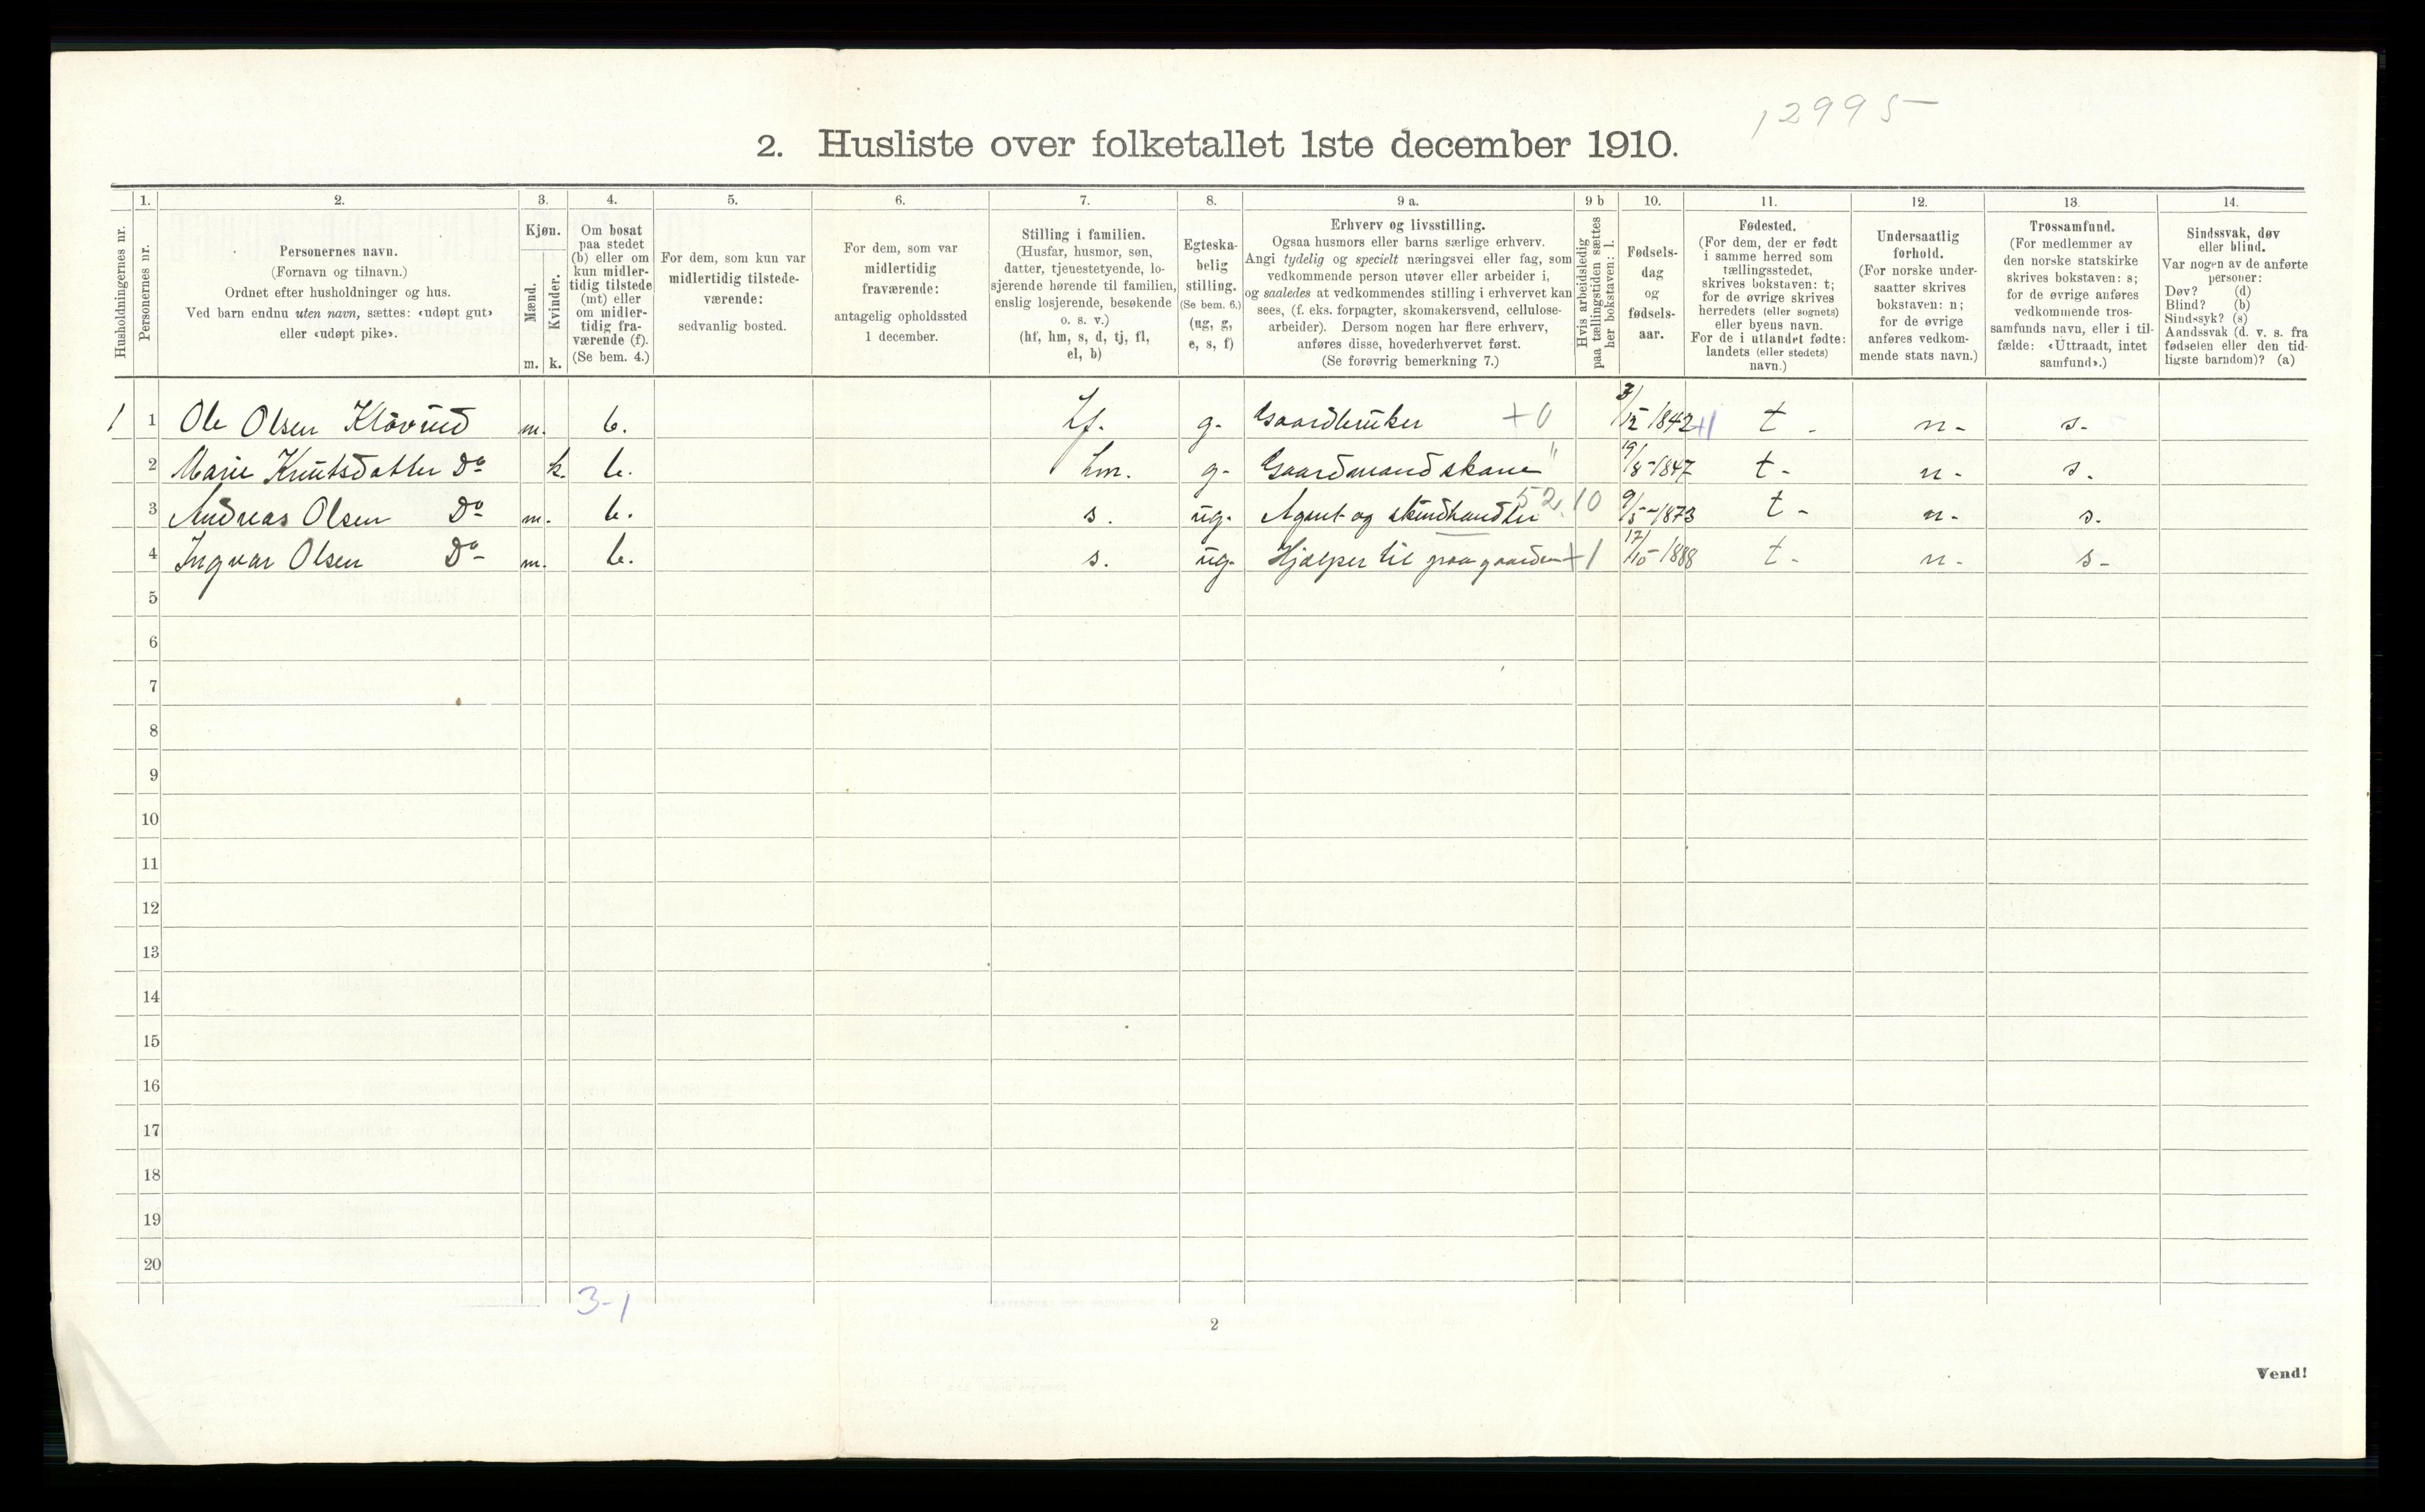 12995
2. Husliste over folketallet 1ste december 1910.
Husholdningernes nr.
1.
Personernes nr.
2.
Personernes navn.
(Fornavn og tilnavn.)
Ordnet efter husholdninger og hus.
Ved barn endnu uten navn, sættes: «udøpt gut»
eller «udøpt pike».
3.
Kjøn.
Mænd.
Kvinder.
m. k.
4.
Om bosat
paa stedet
(b) eller om
kun midler-
tidig tilstede
(mt) eller
om midler-
tidig fra-
værende (f).
(Se bem. 4.)
5.
For dem, som kun var
midlertidig tilstede-
værende:
sedvanlig bosted.
6.
For dem, som var
midlertidig
fraværende:
antagelig opholdssted
1 december.
7.
Stilling i familien.
(Husfar, husmor, søn,
datter, tjenestetyende, lo-
sjerende hørende til familien,
enslig losjerende, besøkende
o. s. v.)
(hf, hm, s, d, tj, fl,
el, b)
8.
Egteska-
belig
stilling.
(Se bem. 6.)
(ug, g,
e, s, f)
9 a.
Erhverv og livsstilling.
Ogsaa husmors eller barns særlige erhverv.
Angi tydelig og specielt næringsvei eller fag, som
vedkommende person utøver eller arbeider i,
og saaledes at vedkommendes stilling i erhvervet kan
sees, (f. eks. forpagter, skomakersvend, cellulose-
arbeider). Dersom nogen har flere erhverv,
anføres disse, hovederhvervet først.
(Se forøvrig bemerkning 7.)
9 b
Hvis arbeidsledig
paa tællingstiden sættes
her bokstaven: l.
10.
Fødsels-
dag
og
fødsels-
aar.
11.
Fødested.
(For dem, der er født
i samme herred som
tællingsstedet,
skrives bokstaven: t;
for de øvrige skrives
herredets (eller sognets)
eller byens navn.
For de i utlandet fødte:
landets (eller stedets)
navn.)
12.
Undersaatlig
forhold.
(For norske under-
saatter skrives
bokstaven: n;
for de øvrige
anføres vedkom-
mende stats navn.)
13.
Trossamfund.
(For medlemmer av
den norske statskirke
skrives bokstaven: s;
for de øvrige anføres
vedkommende tros-
samfunds navn, eller i til-
fælde: «Uttraadt, intet
samfund».)
14.
Sindssvak, døv
eller blind.
Var nogen av de anførte
personer:
Døv? (d)
Blind? (b)
Sindssyk? (s)
Aandssvak (d. v. s. fra
fødselen eller den tid-
ligste barndom)? (a)
1 1 Ole Olsen Kløvrud m. b. hf. g- Gaardbruker +0 /12 1842 +1 t - n- s-
2 Marie Knutsdatter Do k. b. hm. g- Gaardmandskone " 19/8-1847 t- n- s.
3 Andreas Olsen Do m. b. s. ug. Agent og skindhandler 52.10 9/5-1873 t- n- s.
4 Ingvar Olsen Do- m. b. s. ug- Hjælper til paa gaarden +1 17/10-1888 t- n- s-
5
6
7
8
9
10
11
12
13
14
15
16
17
18
19
20
3-1
2
Vend!